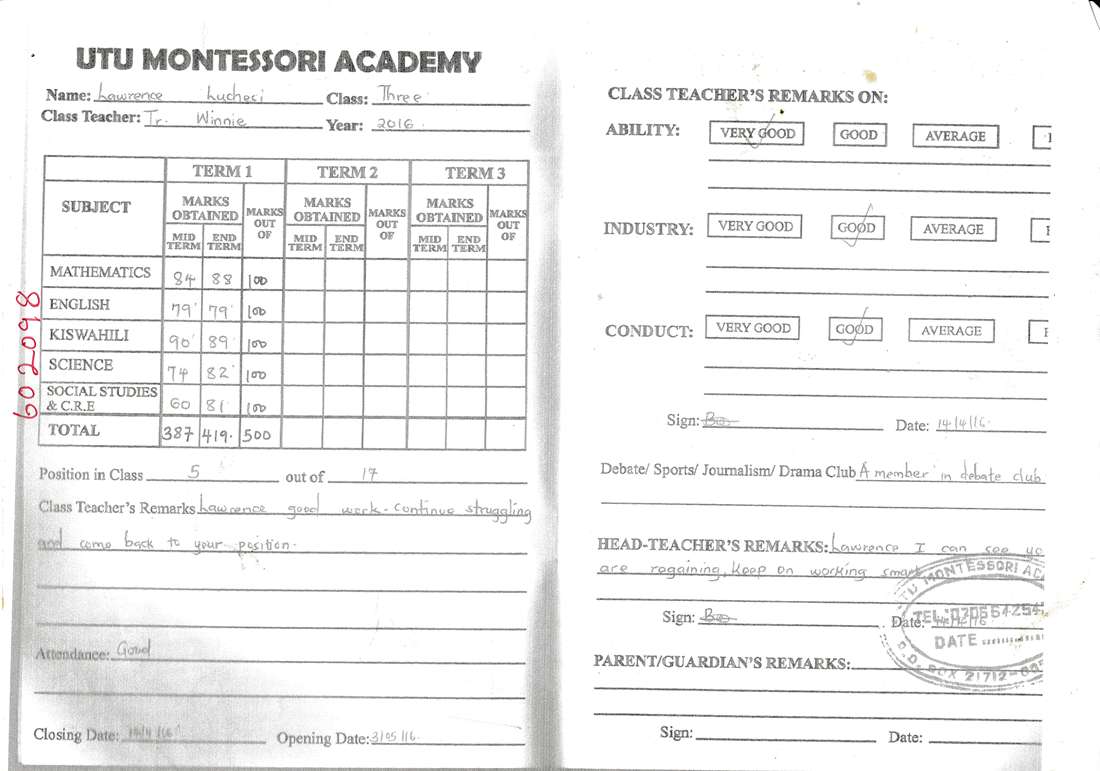 UTU MONTESSORI ACADEMY
Name: Lawrence Lucheci Class: Three
Class Teacher: Tr. Winnie Year: 2016
TERM 1 TERM 2 TERM 3
SUBJECT MARKS OBTAINED MARKS OUT OF MARKS OBTAINED MARKS OUT OF MARKS OBTAINED MARKS OUT OF
MID TERM END TERM MID TERM END TERM MID TERM END TERM
MATHEMATICS 84 88 100
ENGLISH 79 79 100
KISWAHILI 90 89 100
SCIENCE 74 82 100
SOCIAL STUDIES
& C.R.E 60 81 100
TOTAL 387 419 500
602098
Position in Class 5 out of 17
Class Teacher's Remarks Lawrence good work. Continue struggling
and come back to your position.
Attendance: Good
Closing Date: 14/4/16 Opening Date: 3/05/16
CLASS TEACHER'S REMARKS ON:
ABILITY: VERY GOOD GOOD AVERAGE
INDUSTRY: VERY GOOD GOOD AVERAGE
CONDUCT: VERY GOOD GOOD AVERAGE
Sign: Date: 14/4/16
Debate/ Sports/ Journalism/ Drama Club A member in debate club
HEAD-TEACHER'S REMARKS: Lawrence I can see yo
are regaining, Keep on working smart
Sign: Date:
UTU MONTESSORI AC
TEL: 020564254
DATE
P.O. BOX 21712-005
PARENT/GUARDIAN'S REMARKS:
Sign: Date: